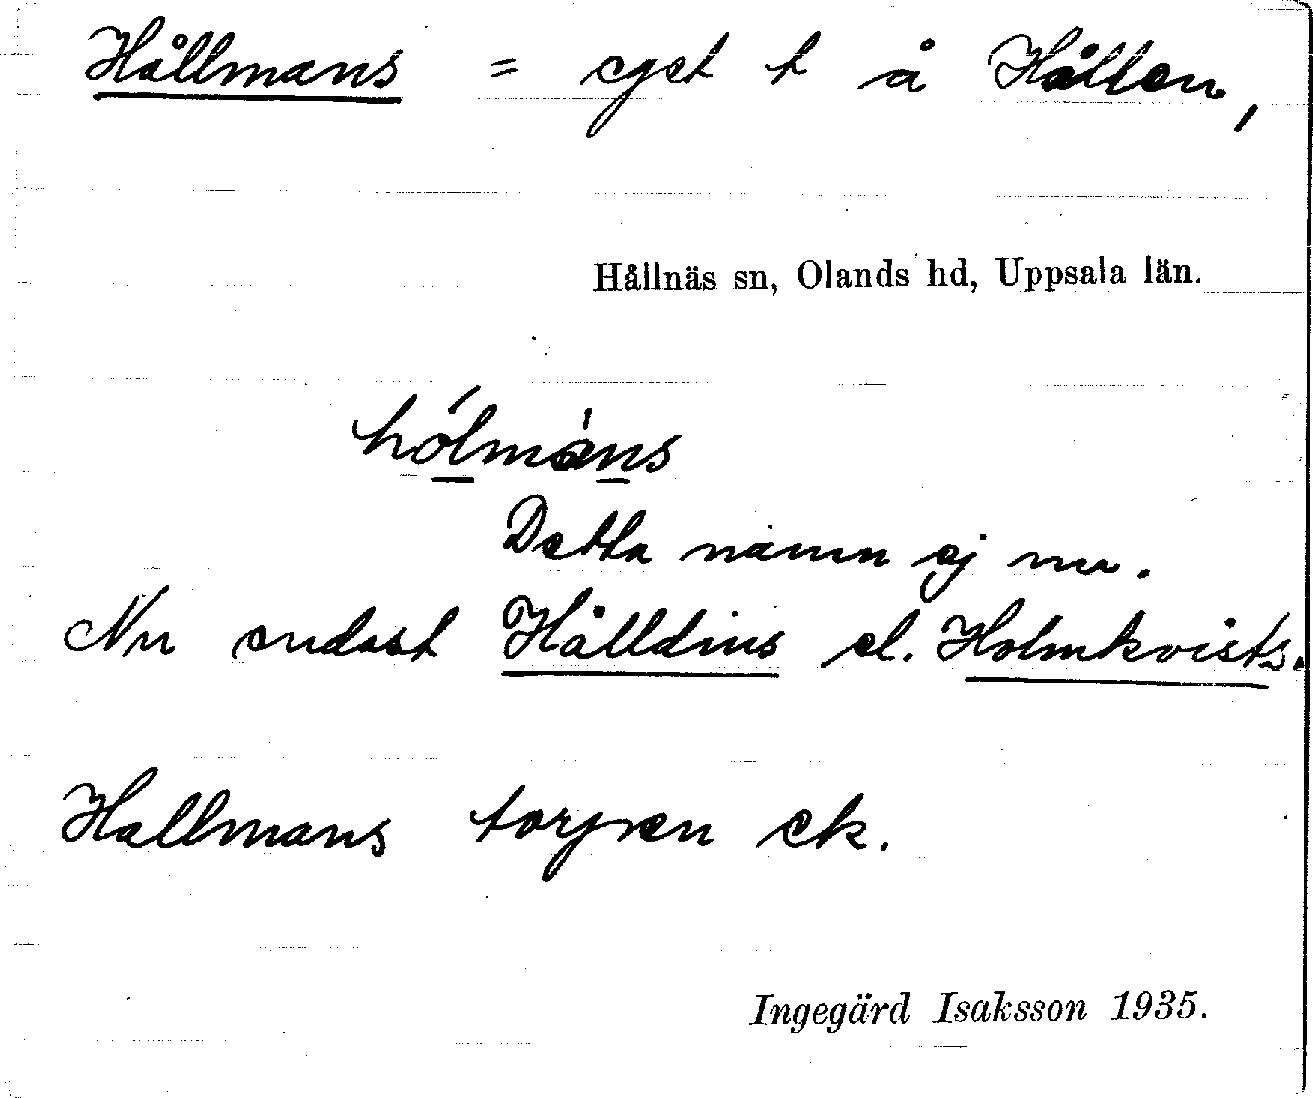 Hållmans = eget t å Hållen,
Hållnäs sn, Olands hd, Uppsala län.
hólmàns
Detta namn ej nu.
Nu endast Hålldins el. Holmkvists.
Hallmans torpen ek.
Ingegärd Isaksson 1935.